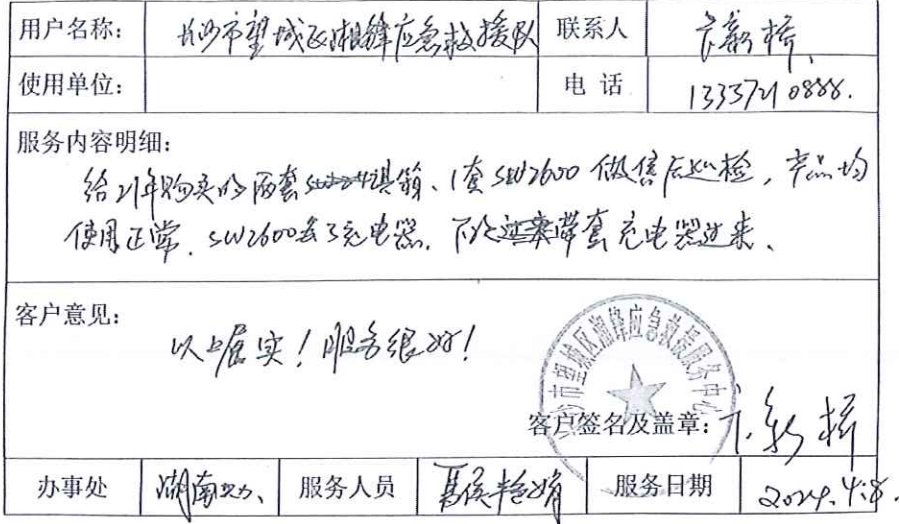 用户名称： 长沙市望城区湘锋应急救援队 联系人 卞新桥
使用单位： 电 话
服务内容明细：
给21年购买的两套 具箱、1套SW2600做售后巡检，产品均
使用正常．SW2600丢了充电器．下次 带套充电器过来、
客户意见：
以上属实！服务很好！
长沙市望城区湘锋应急救援服务中心
客户签名及盖章： 卞新桥
办事处 湖南 服务人员 服务日期 2024.4.8.